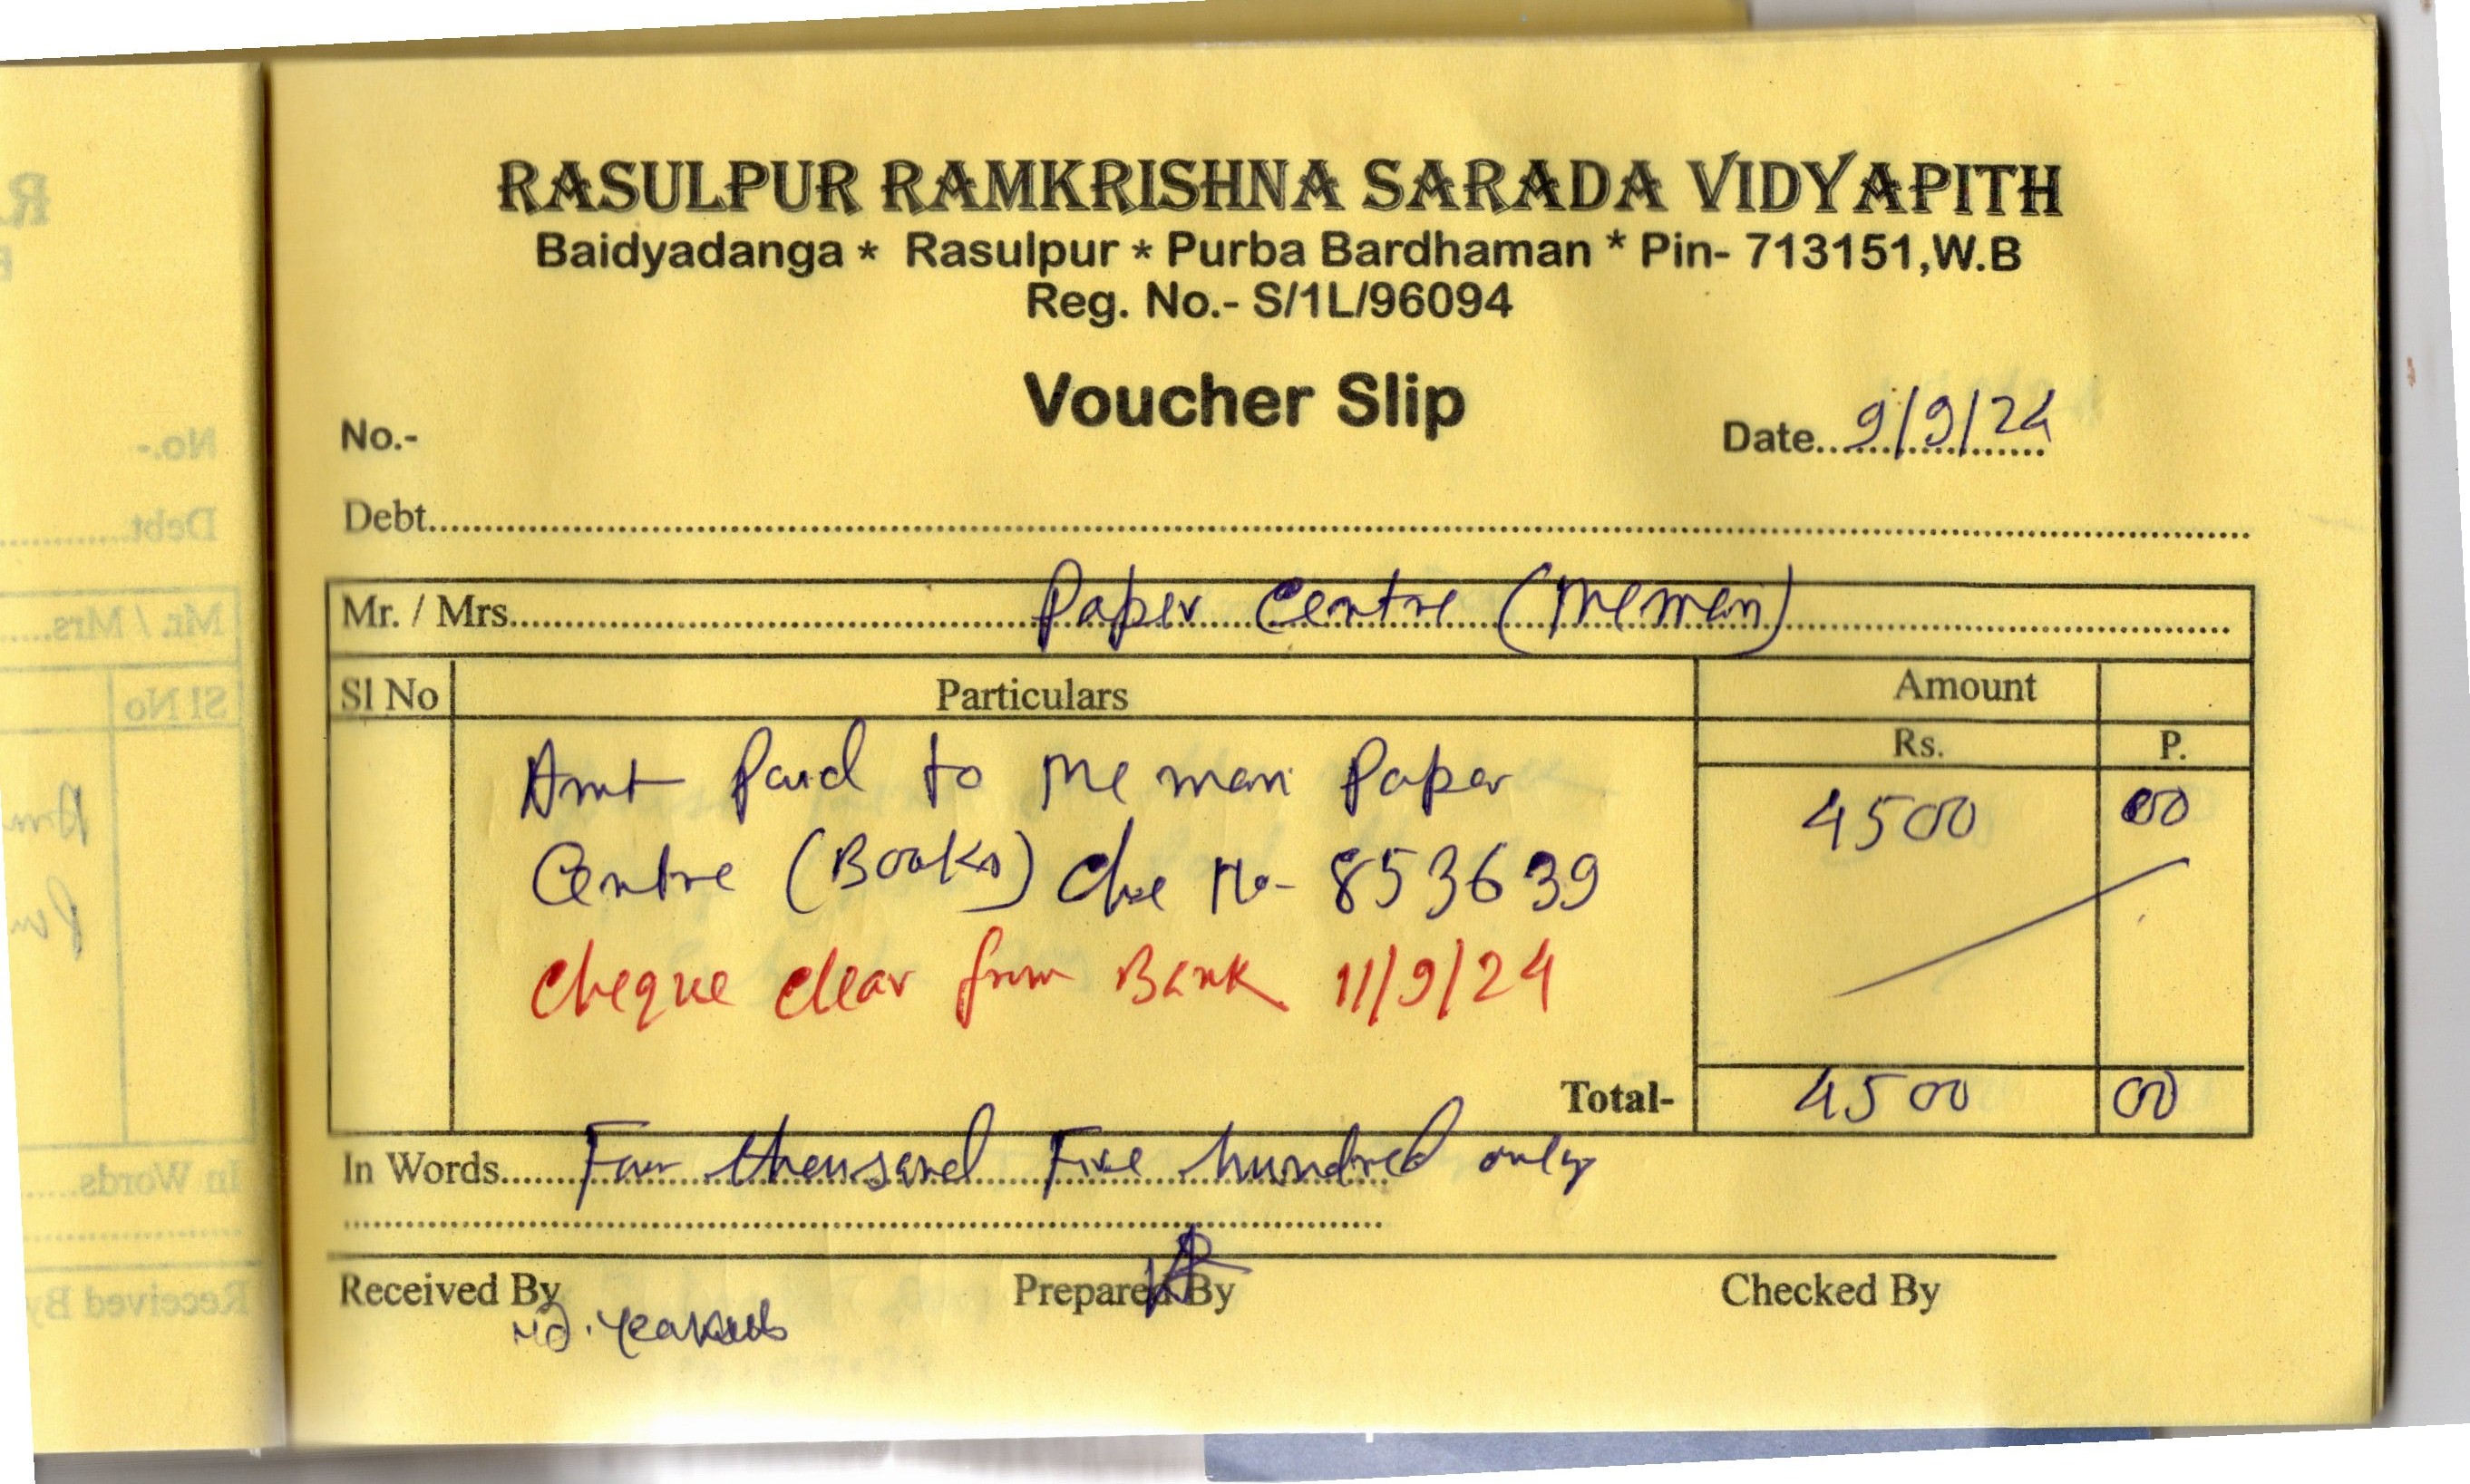 RASULPUR RAMKRISHNA SARADA VIDYAPITH
Baidyadanga * Rasulpur * Purba Bardhaman * Pin- 713151,W.B
Reg. No.- S/1L/96094
Voucher Slip
No.-
Date..9/9/24
Debt
Mr. / Mrs. Paper Centre (Meman)
Sl No Particulars Amount
Rs. P.
Amt Paid to Meman Paper 4500 00
Centre (Books) Che No- 853639
Cheque clear from Bank 11/9/24
Total- 4500 00
In Words Four thousand Five hundred only
Received By Prepared By Checked By
Md.